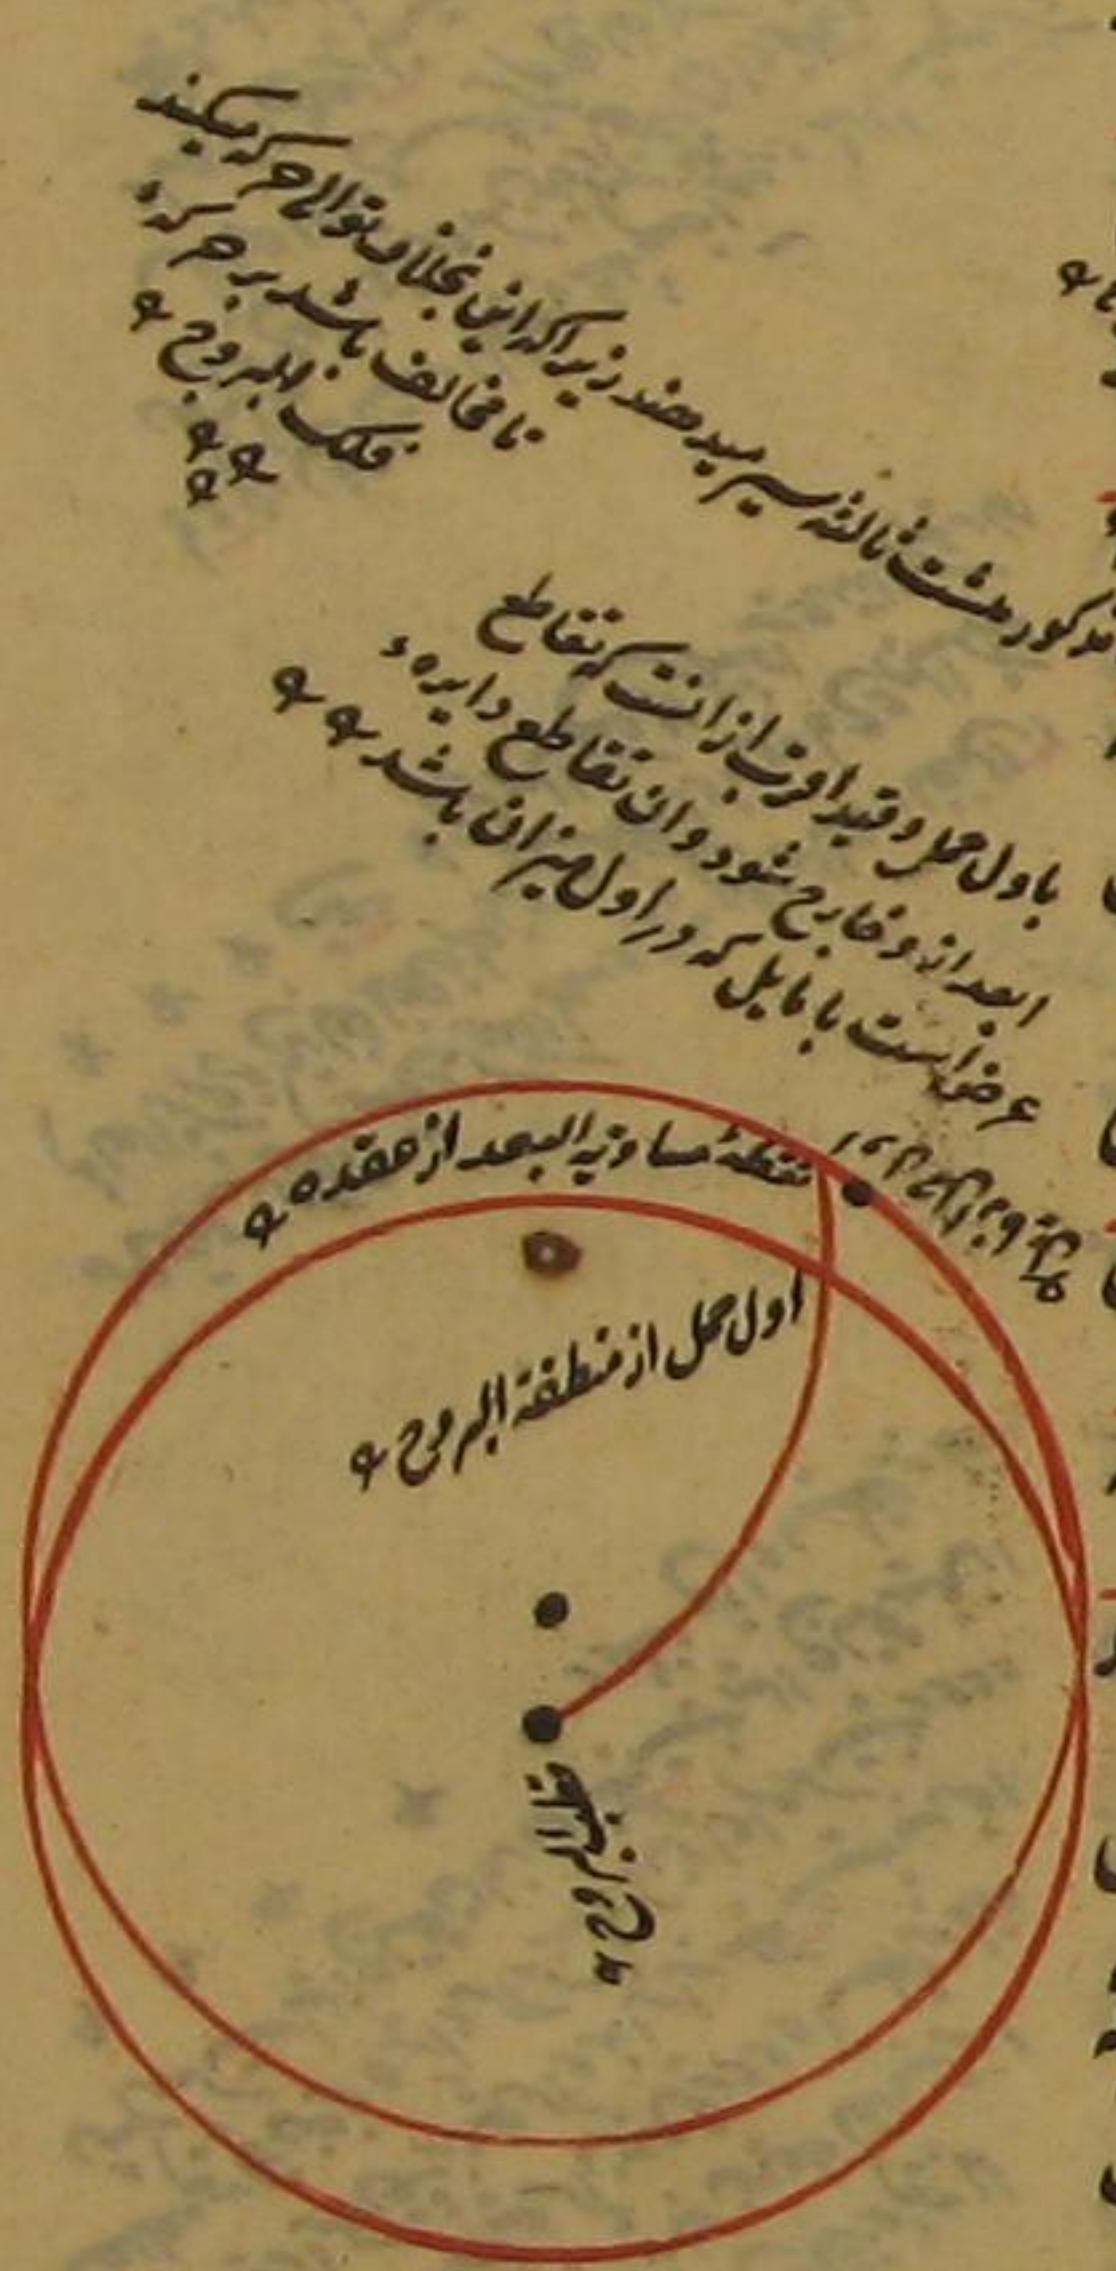 مذکور هشت ثالثه سیر میدهند زیرا که این بخلاف توالی حرکه میکند
تا مخالف باشد بر حرکهٔ
فلک البروج
باول حمل و قید اقرب از انست که تقاطع
ابعد از و خارج شود و ان تقاطع دایرهء
عرض است با مایل که در اول میزان باشد
نقطهٔ مساویه البعد از عقده
اول حمل از منطقة البروج